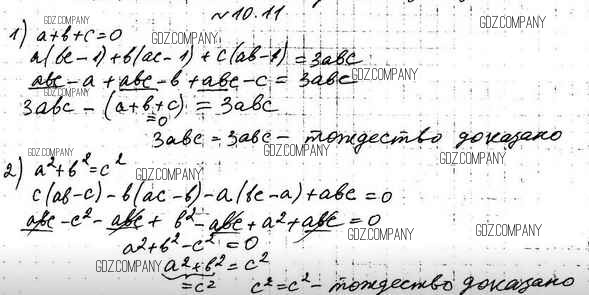 №10.11
1) a+b+c=0
a(bc-1)+b(ac-1)+c(ab-1)=3abc
abc-a+abc-b+abc-c=3abc
3abc-(a+b+c)=3abc
=0
3abc=3abc - тождество доказано
2) a²+b²=c²
c(ab-c)-b(ac-b)-a(bc-a)+abc=0
abc-c²-abc+b²-abc+a²+abc=0
a²+b²-c²=0
a²+b²=c²
=c² c²=c² - тождество доказано
GDZ.COMPANY
GDZ.COMPANY
GDZ.COMPANY
GDZ.COMPANY
GDZ.COMPANY
GDZ.COMPANY
GDZ.COMPANY
GDZ.COMPANY
GDZ.COMPANY
GDZ.COMPANY
GDZ.COMPANY
GDZ.COMPANY
GDZ.COMPANY